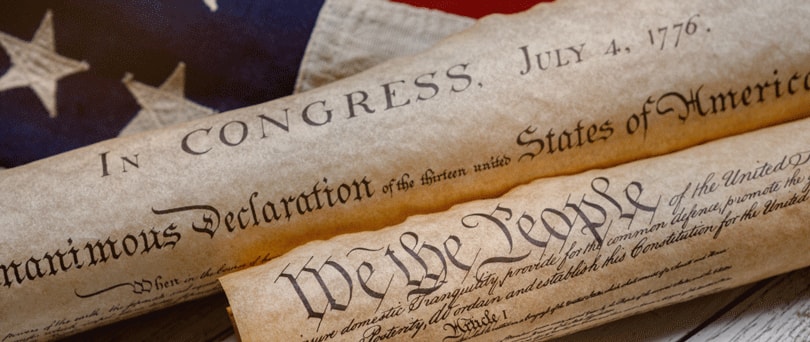 IN CONGRESS. JULY 4, 1776.
nanimous Declaration of the thirteen united States of America
When in the
powers of the earth
We the People of the United
insure domestic Tranquility, provide for the common defence, promote the
Posterity, do ordain and establish this Constitution for the United
Article I